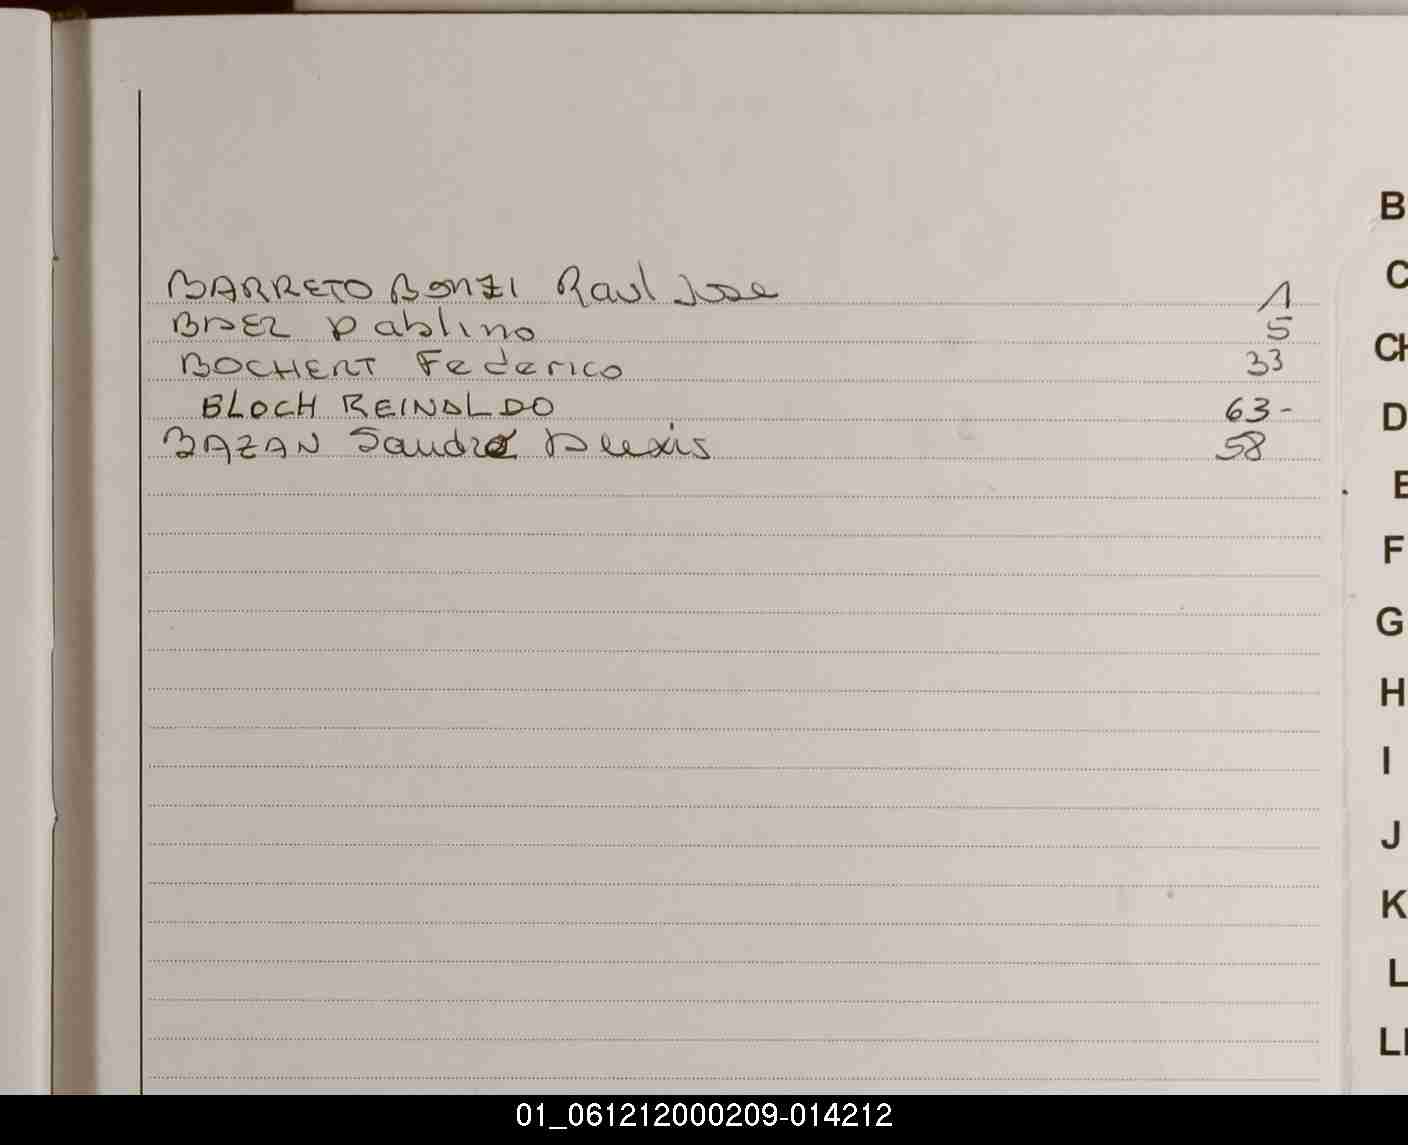 BARRETO BONZI Raul Jose 1
BAEZ Pablino 5
BOCHERT Federico 33
BLOCH REINALDO 63-
BAZAN Sandro Alexis 58
B
C
CH
D
E
F
G
H
I
J
K
L
Ll
01_061212000209-014212